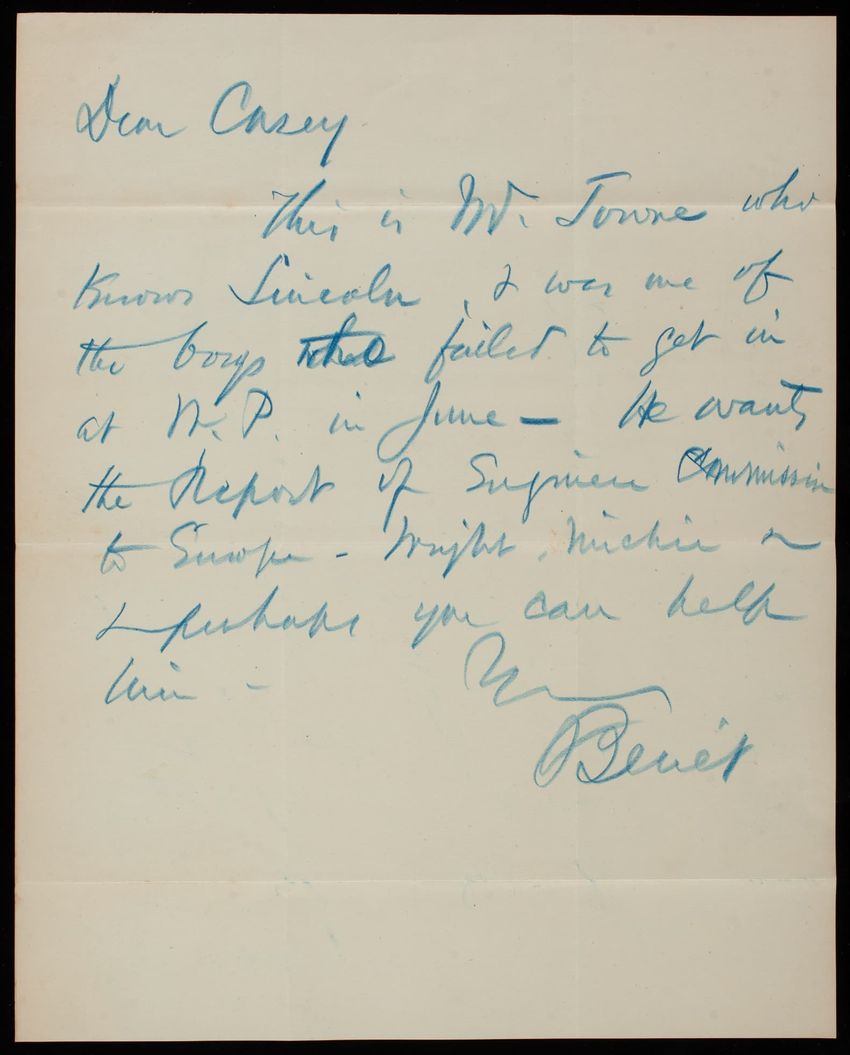 Dear Casey
This is Mr. Towne who
knows Lincoln, & was one of
the boys who failed to get in
at W. P. in June — He wants
the Report of Engineer Commission
to Europe - Wright, Michie &
& perhaps you can help
him -
Yrs
Benét